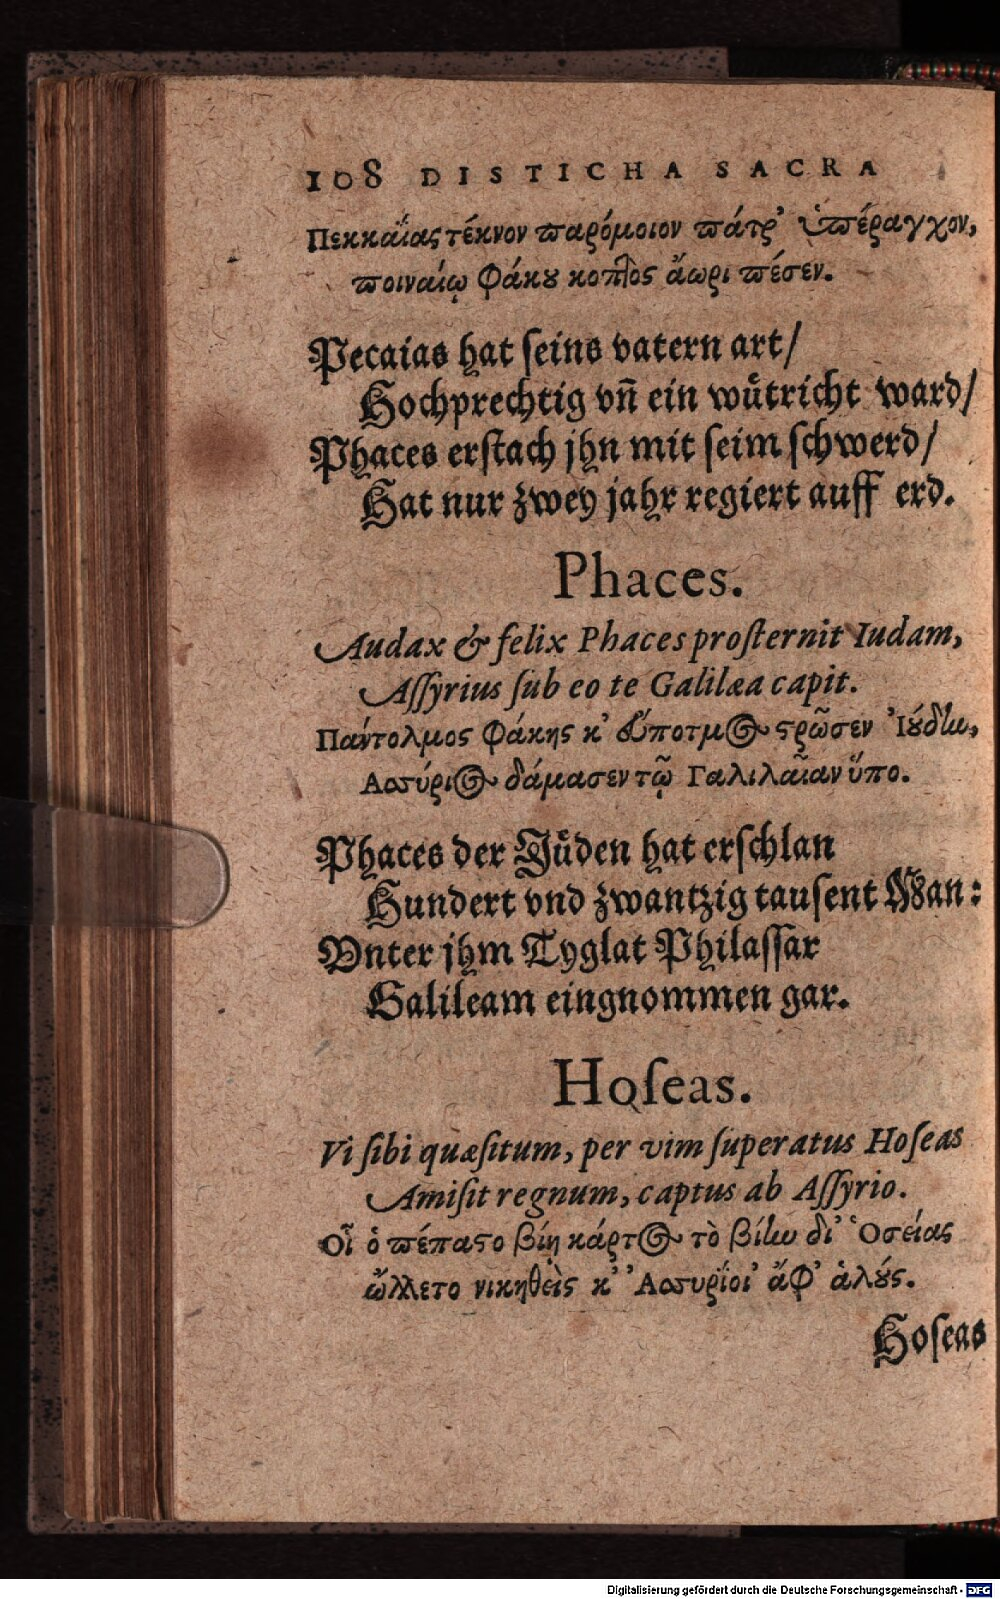 108 DISTICHA SACRA
Πεκκαΐας τέκνον παρόμοιον πάτρ' ὑπέραγχον,
ποιναίῳ Φάκου κοπῖδος ἄωρι πέσεν.
Pecaias hat ſeins vatern art/
Hochprechtig vñ ein wuͤtricht ward/
Phaces erſtach jhn mit ſeim ſchwerd/
Hat nur zwey jahr regiert auff erd.
Phaces.
Audax & felix Phaces proſternit Iudam,
Aſſyrius ſub eo te Galilæa capit.
Πάντολμος Φάκης κ' εὔποτμος στρῶσεν Ἰούδην,
Ασσύριος δάμασεν τῷ Γαλιλαῖαν ὕπο.
Phaces der Juͤden hat erſchlan
Hundert vnd zwantzig tauſent Man:
Vnter jhm Tyglat Philaſſar
Galileam eingnommen gar.
Hoſeas.
Vi ſibi quæſitum, per vim ſuperatus Hoſeas
Amiſit regnum, captus ab Aſſyrio.
Οἷ ὁ πέπατο βίῃ κάρτος τὸ βίην δι' Ὁσείας
ὤλλετο νικηθεὶς κ' Ἀσσυρίοι' ἄφ' ἁλούς.
Hoſeas
Digitalisierung gefördert durch die Deutsche Forschungsgemeinschaft - DFG